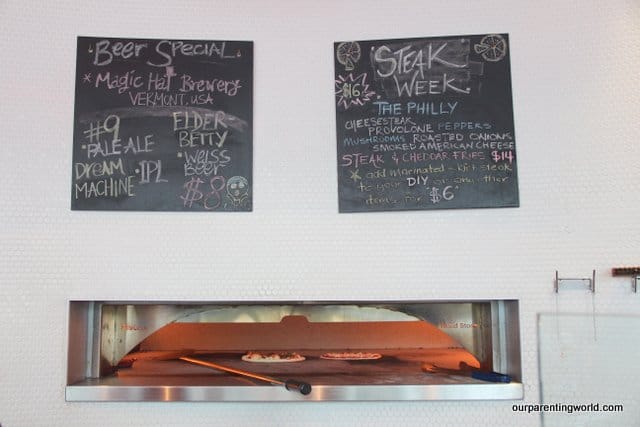 Beer Special
* Magic Hat Brewery
VERMONT, USA
#9
• PALE·ALE
DREAM
MACHINE • IPL
ELDER
BETTY
• WEISS
BEER
$8
STEAK
WEEK
$16
THE PHILLY
CHEESESTEAK
PROVOLONE PEPPERS
MUSHROOMS ROASTED ONIONS
SMOKED AMERICAN CHEESE
STEAK & CHEDDAR FRIES $14
* add marinated steak
to your DIY or any other
items for $6
Wood Stone
ourparentingworld.com